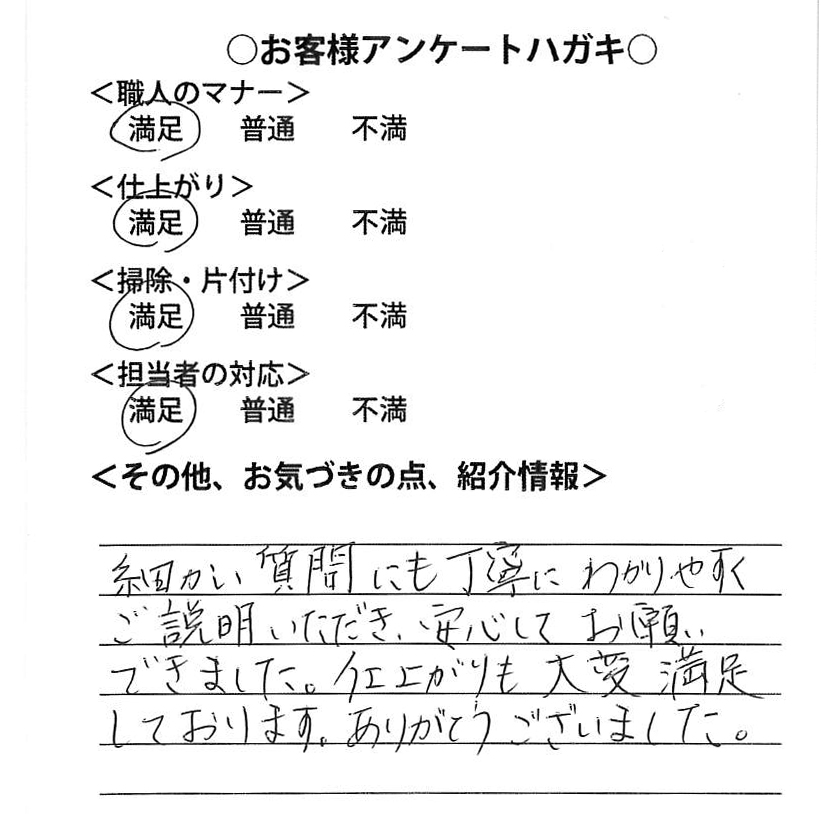 ○お客様アンケートハガキ○
＜職人のマナー＞
満足 普通 不満
＜仕上がり＞
満足 普通 不満
＜掃除・片付け＞
満足 普通 不満
＜担当者の対応＞
満足 普通 不満
＜その他、お気づきの点、紹介情報＞
細かい質問にも丁寧にわかりやすく
ご説明いただき、安心してお願い
できました。仕上がりも大変満足
しております。ありがとうございました。